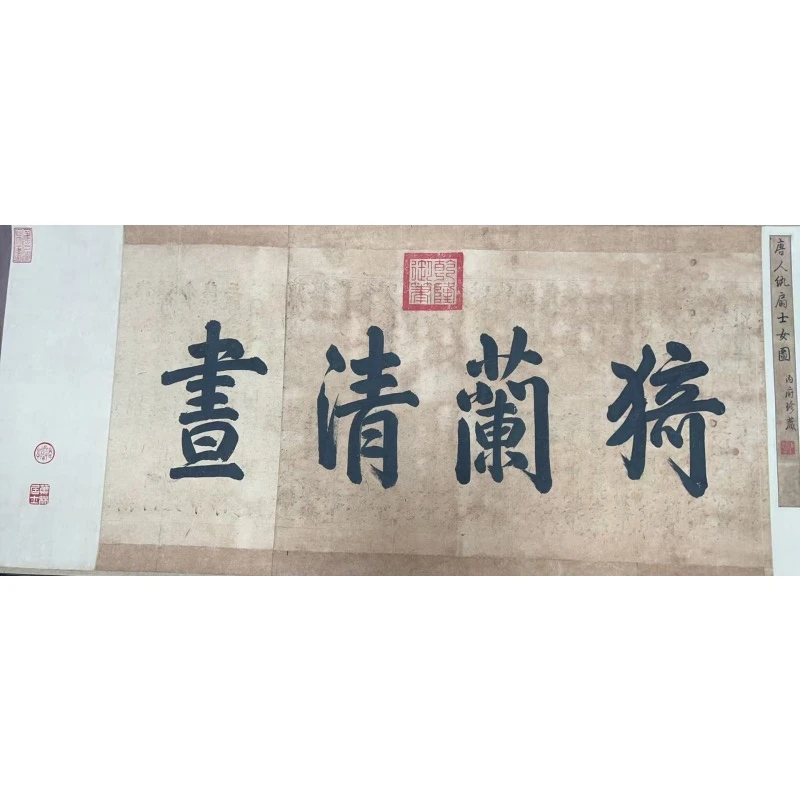 唐人紈扇士女圖
内府珍藏
乾隆御筆
猗蘭清晝